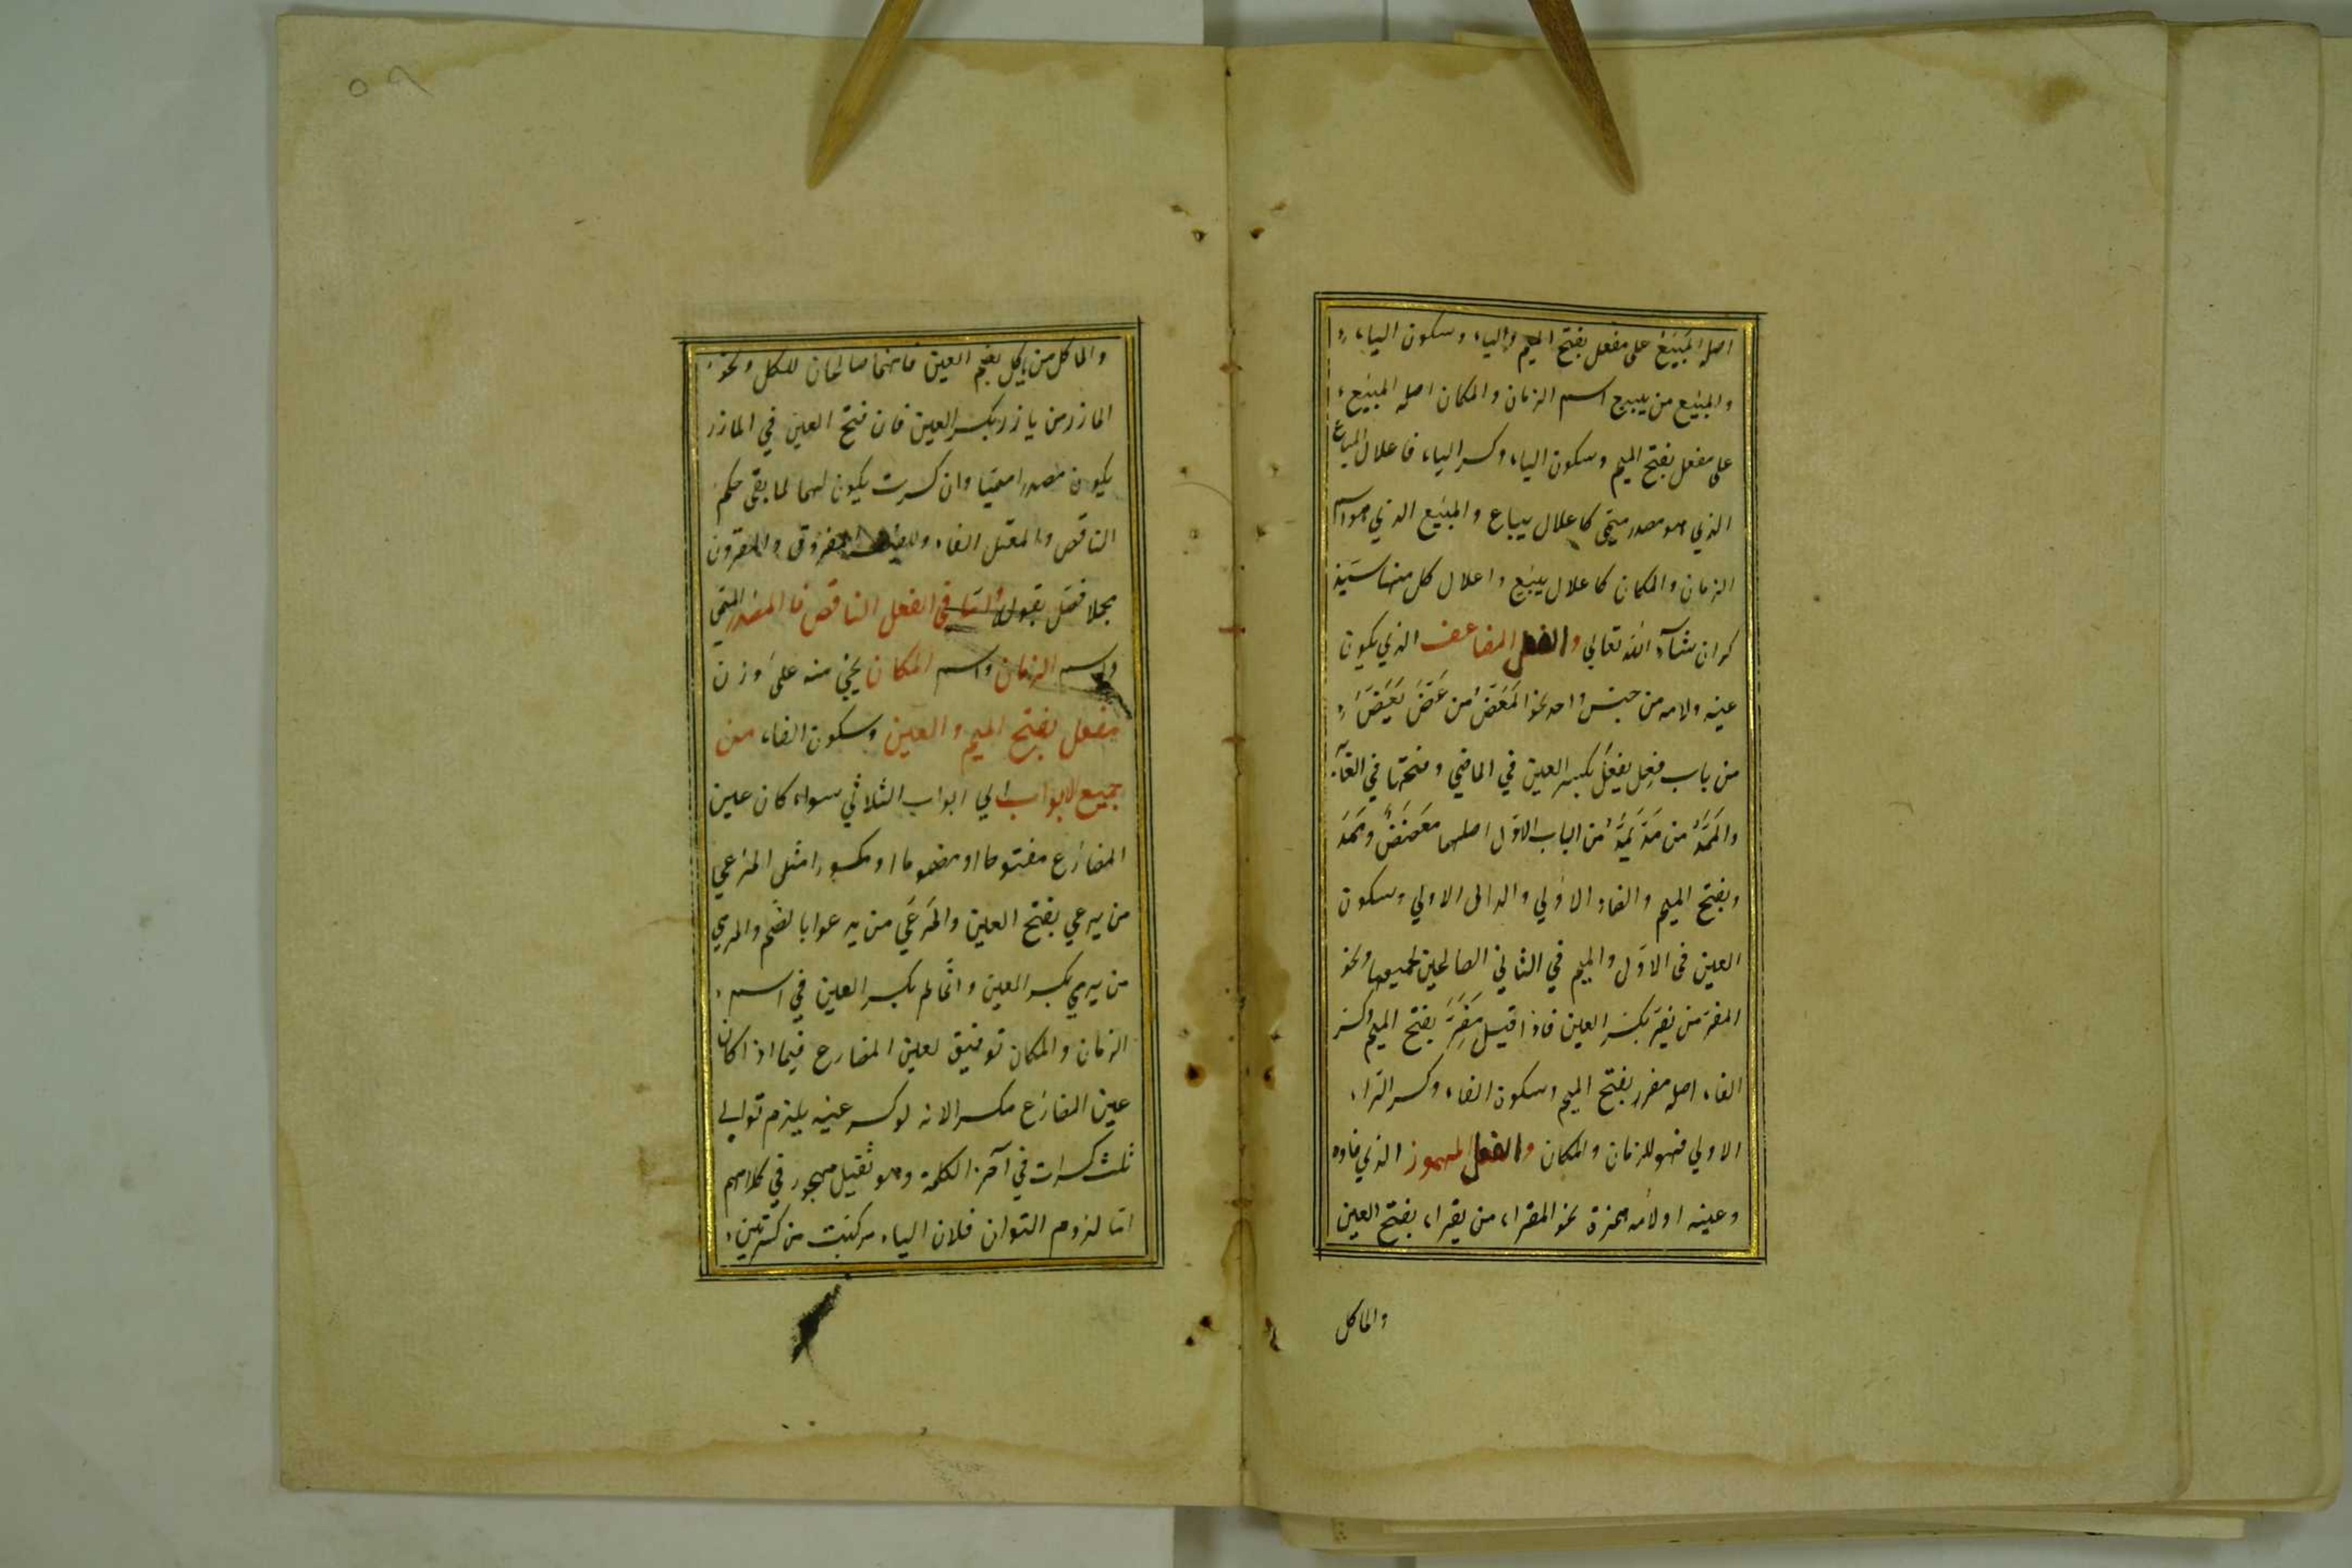 اصله المَبْيَعُ على مفعل بفتح الميم والياء وسكون الياء
والمبيع من يبيع اسم الزمان والمكان اصله المبيع
على مفعل بفتح الميم وسكون الياء وكسر الياء فاعلال المباع
الذي هو مصدر ميمى كاعلال يباع والمبيع الذي هو اسم
الزمان والمكان كاعلال يبيع واعلال كل منها سيذ
كر ان شآء الله تعالي والفعل المضاعف الذي يكون
عينه ولامه من جنس واحد نحو المَعَضّ من عَضَّ يَعَضُّ
من باب فعِل يفعَل بكسر العين في الماضي وفتحها في الغا
والمَمَدُّ من مَدَّ يَمُدُّ من الباب الاوّل اصلهما مَعْضَضٌ ومَمْدَدٌ
وبفتح الميم والضاد الاولي والدال الاولي وسكون
العين فى الاوّل والميم في الثاني الصالحين لجميعها ونحو
المفرّ من يفرّ بكسر العين فاذا قيل مَفِرّ بفتح الميم وكسر
الفاء اصله مفرر بفتح الميم وسكون الفاء وكسر الراء
الاولي فهو للزمان والمكان والفعل المهموز الذي فاؤه
وعينه اولامه همزة نحو المقراء من يقراء بفتح العين
والماكل
والماكل من ياكل بضم العين فانهما صالحان للكل ونحو
المازر من يازر بكسر العين فان فتح العين في المازر
يكون مصدرا ميميّا وان كسرت يكون لهما لما بقى حكم
الناقص والمعتل الفاء واللفيف المفروق والمقرون
مجملا فصّل بقوله وامّا في الفعل الناقص فالمصدر الميمى
واسم الزمان واسم المكان يجئ منه على وزن
مفعل بفتح الميم والعين وسكون الفاء من
جميع الابواب اي ابواب الثلاثي سواء كان عين
المضارع مفتوحا او مضموما او مكسورا مثل المرعي
من يرعي بفتح العين والمَرعَي من يرعوا بالضم والمرمي
من يرمي بكسر العين وانّما لم يكسر العين في اسم
الزمان والمكان توفيق لعين المضارع فيما اذا كان
عين المضارع مكسرا لانه لو كسر عينه يلزم توالي
ثلث كسرات في آخر الكلمة وهو ثقيل مهجور في كلامهم
امّا لزوم التوان فلان الياء مركبت من كسرتين